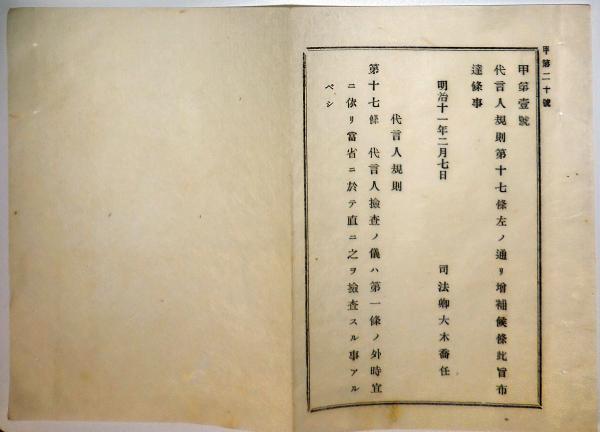 甲第二十號
甲第壹號
代言人規則第十七條左ノ通リ增補候條此旨布
達候事
明治十一年二月七日
司法卿大木喬任
代言人規則
第十七條 代言人檢査ノ儀ハ第一條ノ外時宜
ニ依リ當省ニ於テ直ニ之ヲ檢査スル事アル
ベシ